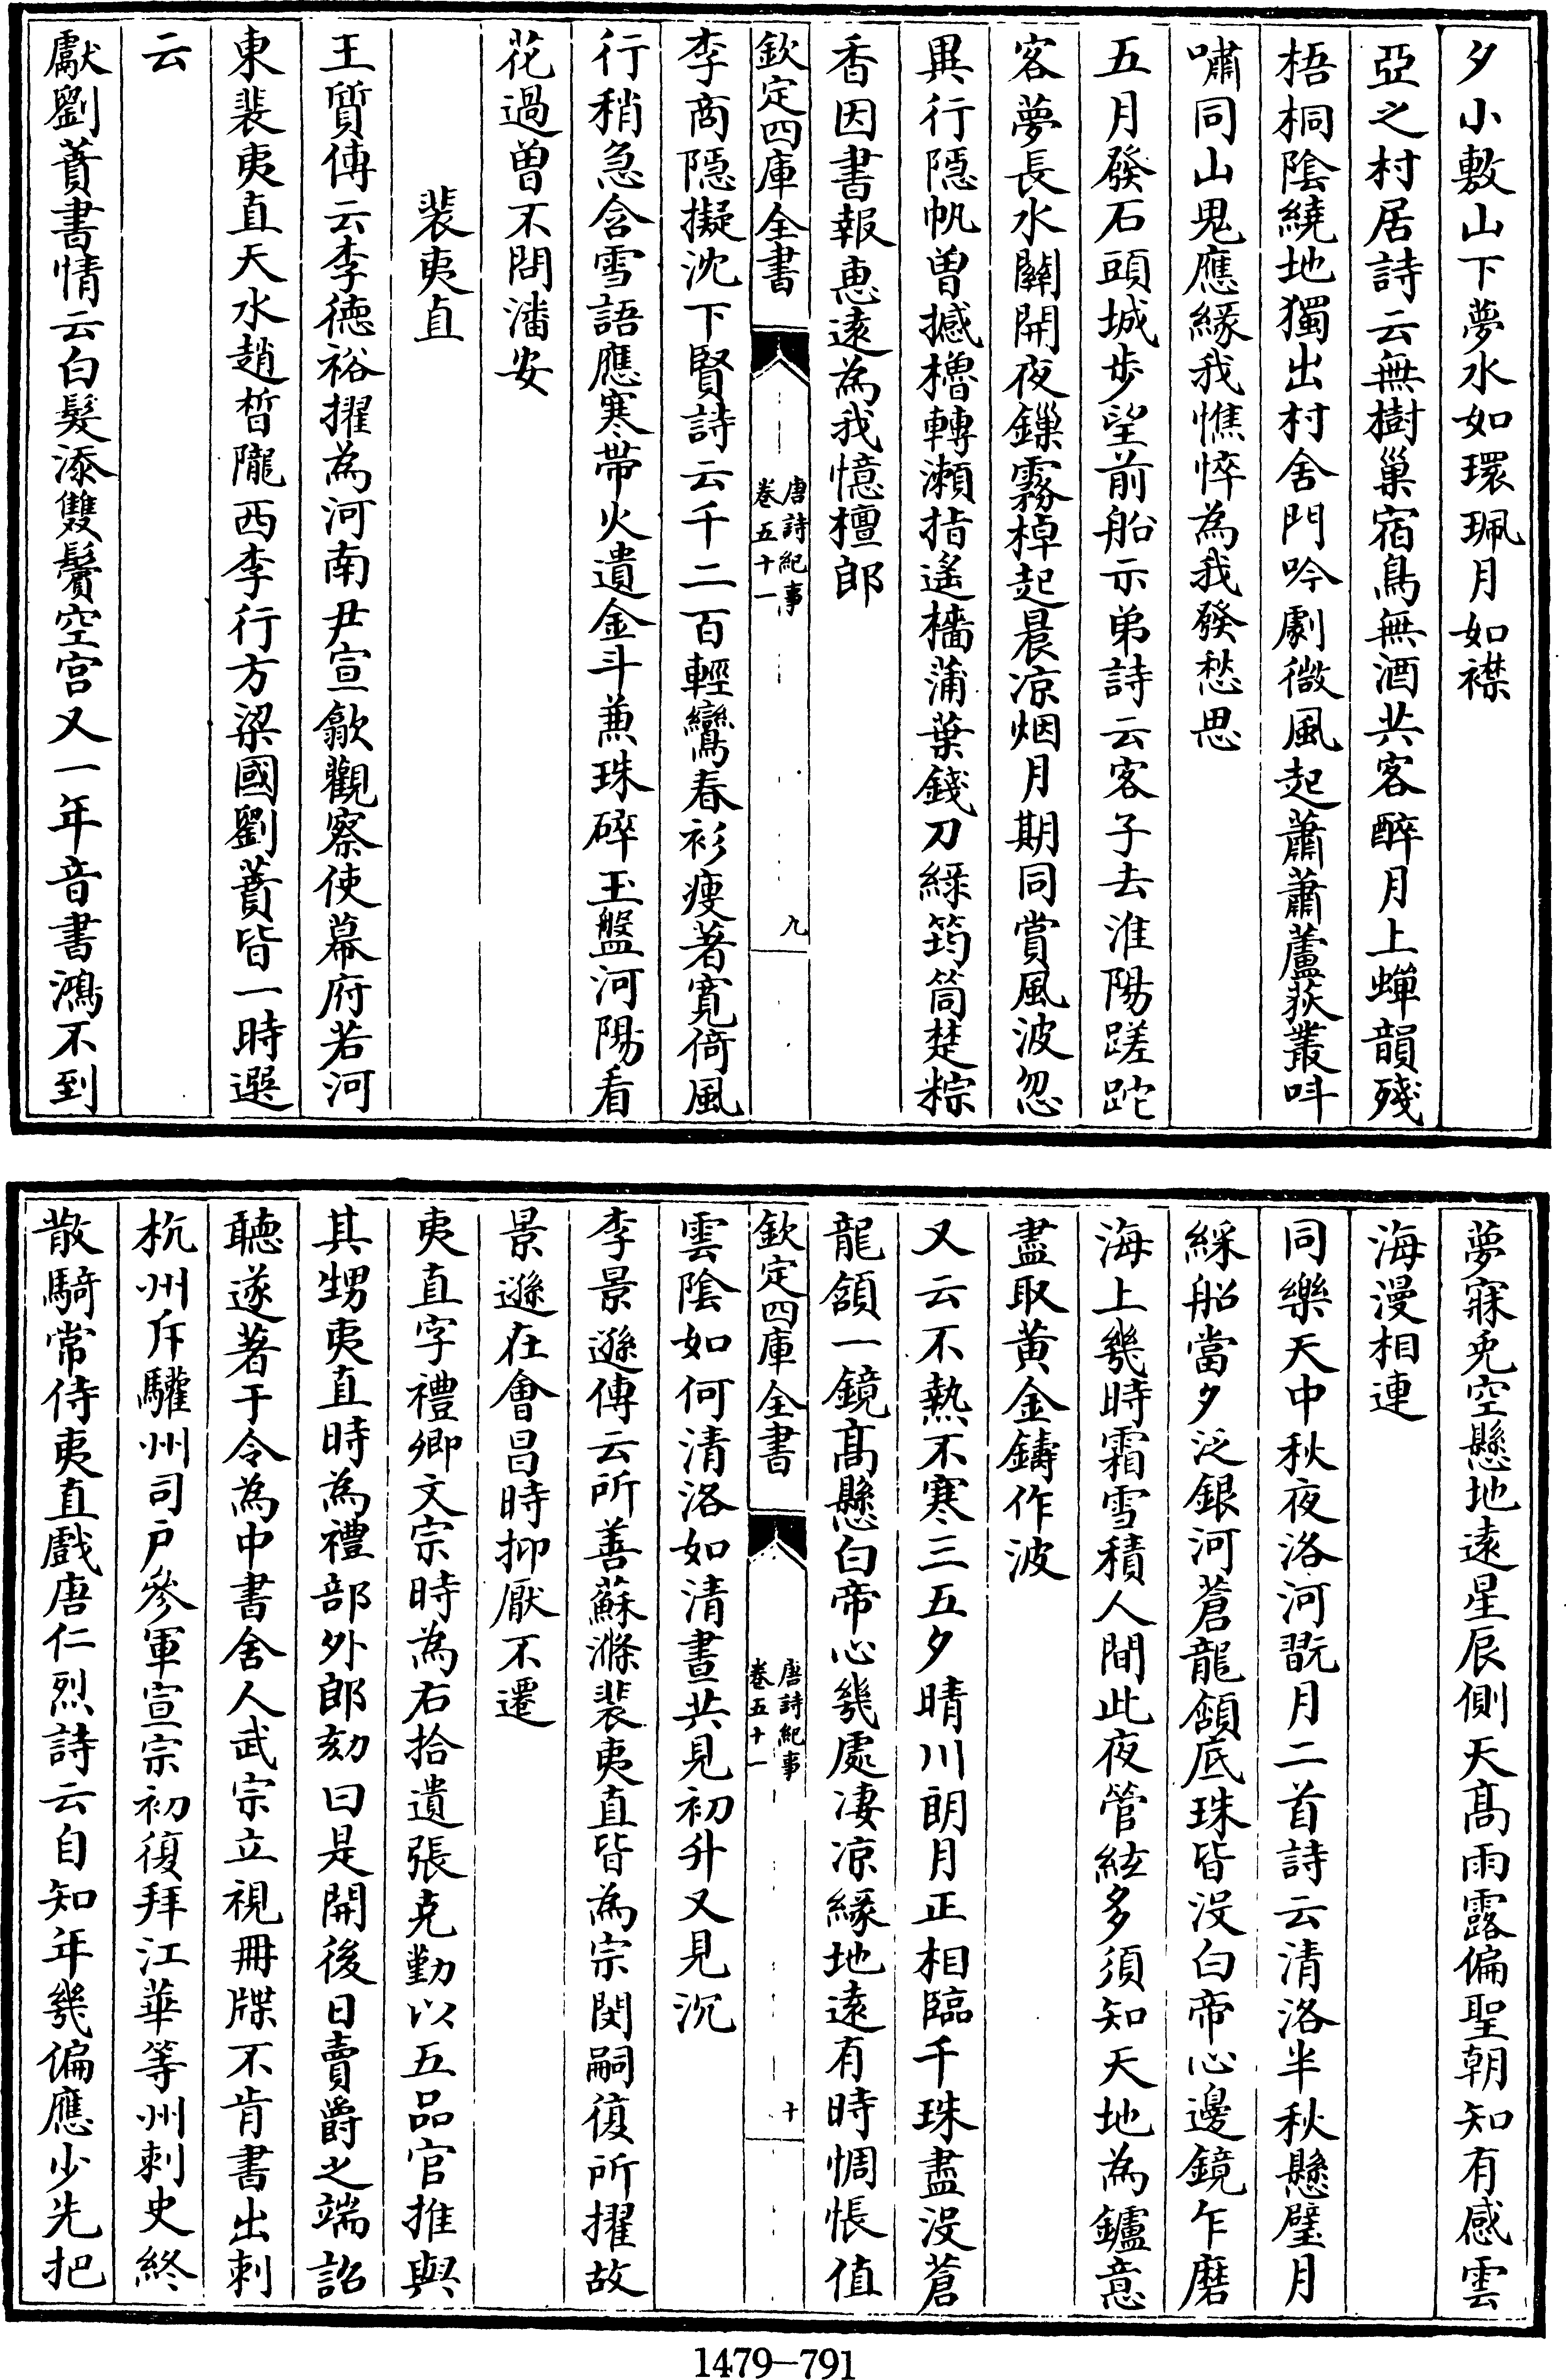 夕小敷山下夢水如環珮月如襟
亞之村居詩云無樹巢宿鳥無酒共客醉月上蟬韻殘
梧桐陰繞地獨出村舍門吟劇微風起蕭蕭蘆荻叢呌
嘯同山鬼應緣我憔悴為我發愁思
五月發石頭城步望前船示弟詩云客子去淮陽蹉跎
客夢長水關開夜鏁霧棹起晨凉烟月期同賞風波忽
異行隱帆曽撼櫓轉瀬指遙檣蒲葉錢刀綠筠筒楚粽
香因書報惠逺為我憶檀郎
欽定四庫全書
唐詩紀事
卷五十一
九
李商隱擬沈下賢詩云千二百輕鸞春衫瘦著寛倚風
行稍急含雪語應寒帶火遺金斗兼珠碎玉盤河陽看
花過曽不問潘安
裴夷直
王質傳云李徳裕擢為河南尹宣歙觀察使幕府若河
東裴夷直天水趙晳隴西李行方梁國劉蕡皆一時選
云
獻劉蕡書情云白髮添雙鬢空宫又一年音書鴻不到
夢寐兎空懸地逺星辰側天髙雨露偏聖朝知有感雲
海漫相連
同樂天中秋夜洛河翫月二首詩云清洛半秋懸璧月
綵船當夕泛銀河蒼龍頷底珠皆没白帝心邊鏡乍磨
海上幾時霜雪積人間此夜管絃多須知天地為鑪意
盡取黄金鑄作波
又云不熱不寒三五夕晴川朗月正相臨千珠盡没蒼
龍頷一鏡髙懸白帝心幾處凄凉緣地逺有時惆悵值
欽定四庫全書
唐詩紀事
卷五十一
十
雲陰如何清洛如清晝共見初升又見沉
李景遜傳云所善蘇滌裴夷直皆為宗閔嗣復所擢故
景遜在會昌時抑厭不遷
夷直字禮卿文宗時為右拾遺張克勤以五品官推與
其甥夷直時為禮部外郎劾曰是開後日賣爵之端詔
聽遂著于令為中書舍人武宗立視冊牒不肯書出刺
杭州斥驩州司户參軍宣宗初復拜江華等州刺史終
散騎常侍夷直戲唐仁烈詩云自知年幾偏應少先把
1479—791